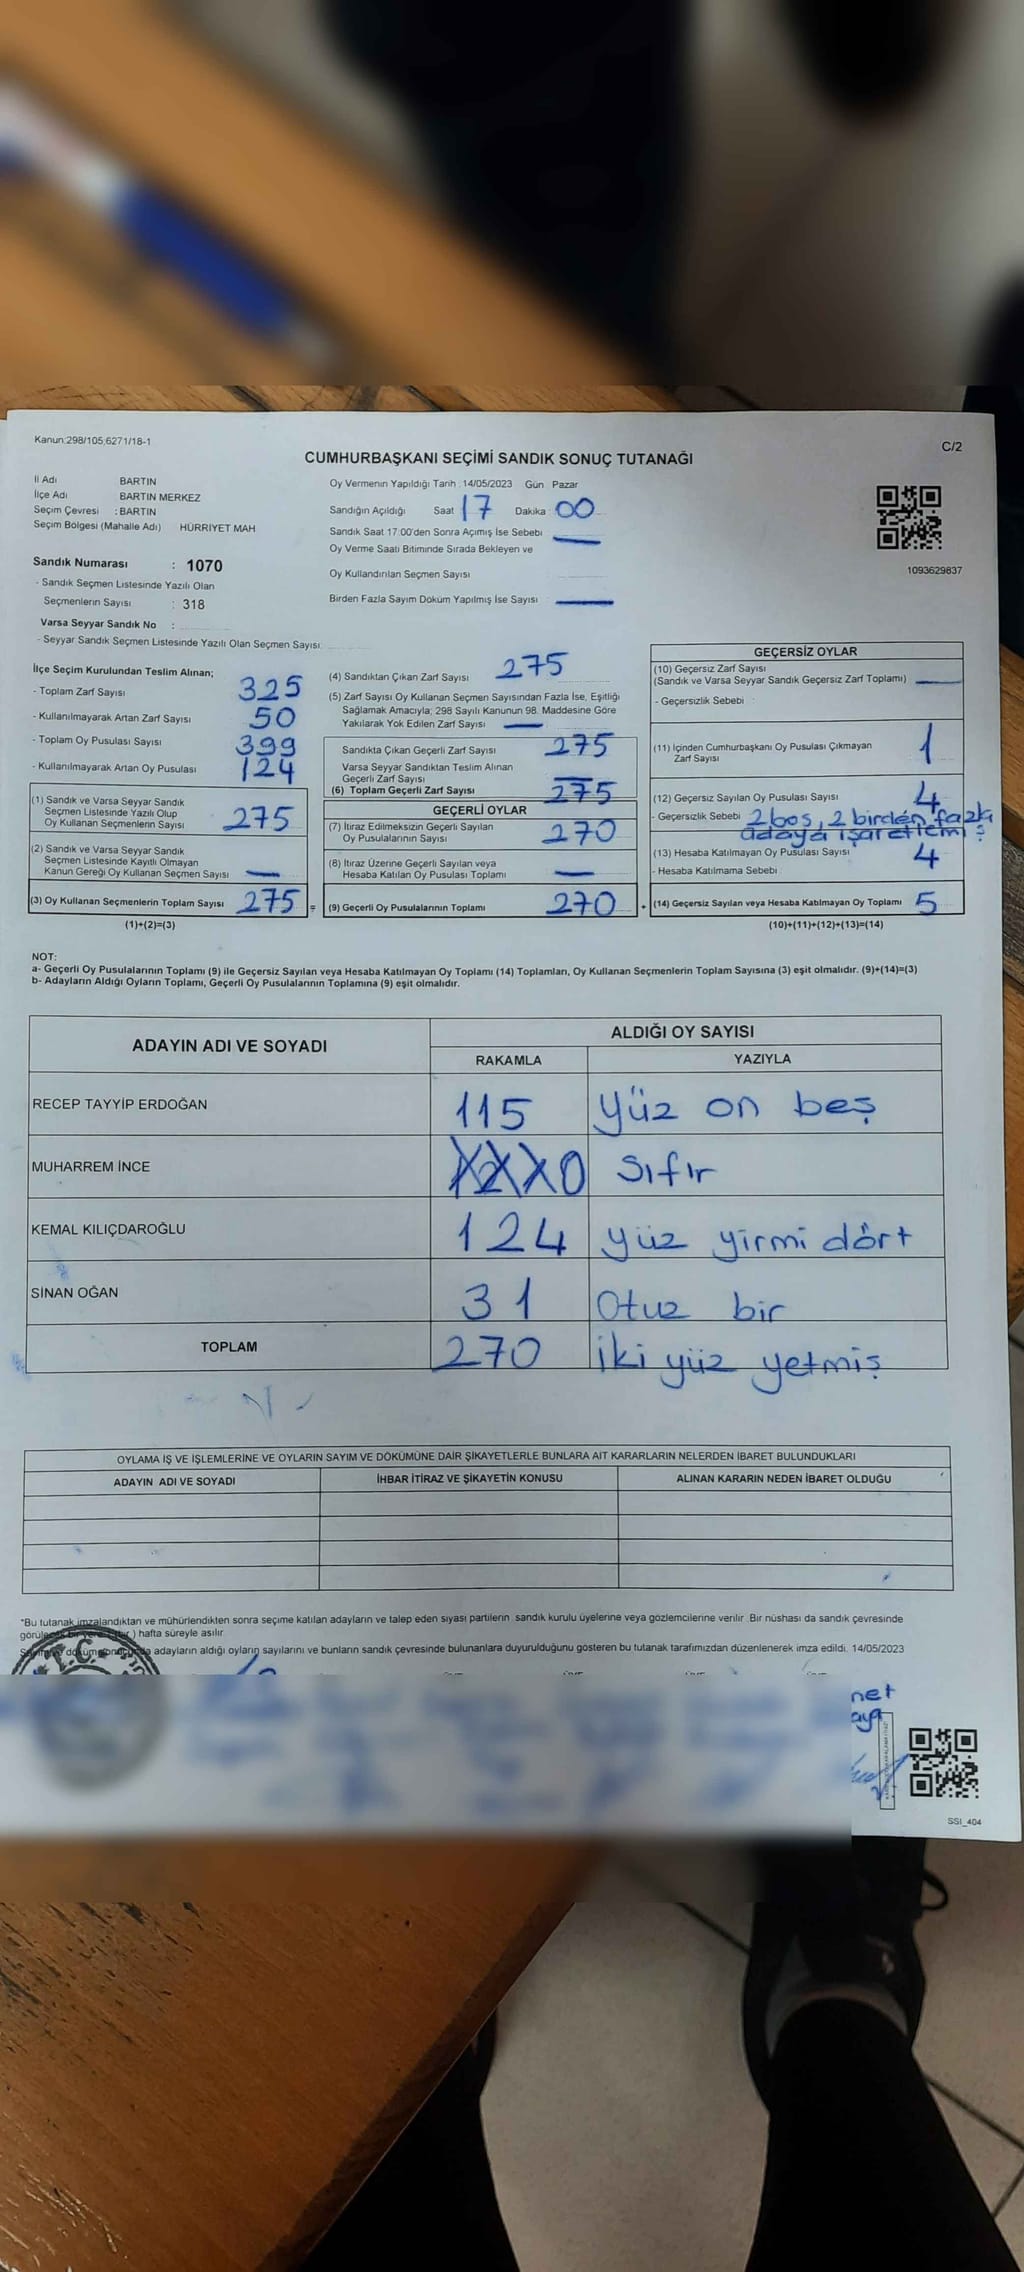 Kanun:298/105;6271/18-1
C/2
CUMHURBAŞKANI SEÇİMİ SANDIK SONUÇ TUTANAĞI
İl Adı BARTIN
İlçe Adı BARTIN MERKEZ
Seçim Çevresi : BARTIN
Seçim Bölgesi (Mahalle Adı) HÜRRİYET MAH
Sandık Numarası : 1070
- Sandık Seçmen Listesinde Yazılı Olan
Seçmenlerin Sayısı : 318
Varsa Seyyar Sandık No :
- Seyyar Sandık Seçmen Listesinde Yazılı Olan Seçmen Sayısı:
Oy Vermenin Yapıldığı Tarih : 14/05/2023 Gün Pazar
Sandığın Açıldığı Saat 17 Dakika 00
Sandık Saat 17:00'den Sonra Açımış İse Sebebi —
Oy Verme Saati Bitiminde Sırada Bekleyen ve
Oy Kullandırılan Seçmen Sayısı
Birden Fazla Sayım Döküm Yapılmış İse Sayısı —
1093629837
İlçe Seçim Kurulundan Teslim Alınan;
- Toplam Zarf Sayısı 325
- Kullanılmayarak Artan Zarf Sayısı 50
- Toplam Oy Pusulası Sayısı 399
- Kullanılmayarak Artan Oy Pusulası 124
(1) Sandık ve Varsa Seyyar Sandık
Seçmen Listesinde Yazılı Olup
Oy Kullanan Seçmenlerin Sayısı 275
(2) Sandık ve Varsa Seyyar Sandık
Seçmen Listesinde Kayıtlı Olmayan
Kanun Gereği Oy Kullanan Seçmen Sayısı —
(3) Oy Kullanan Seçmenlerin Toplam Sayısı 275 =
(1)+(2)=(3)
(4) Sandıktan Çıkan Zarf Sayısı 275
(5) Zarf Sayısı Oy Kullanan Seçmen Sayısından Fazla İse, Eşitliği
Sağlamak Amacıyla; 298 Sayılı Kanunun 98. Maddesine Göre
Yakılarak Yok Edilen Zarf Sayısı —
Sandıkta Çıkan Geçerli Zarf Sayısı 275
Varsa Seyyar Sandıktan Teslim Alınan
Geçerli Zarf Sayısı —
(6) Toplam Geçerli Zarf Sayısı 275
GEÇERLİ OYLAR
(7) İtiraz Edilmeksizin Geçerli Sayılan
Oy Pusulalarının Sayısı 270
(8) İtiraz Üzerine Geçerli Sayılan veya
Hesaba Katılan Oy Pusulası Toplamı —
(9) Geçerli Oy Pusulalarının Toplamı 270 +
GEÇERSİZ OYLAR
(10) Geçersiz Zarf Sayısı
(Sandık ve Varsa Seyyar Sandık Geçersiz Zarf Toplamı) —
- Geçersizlik Sebebi
(11) İçinden Cumhurbaşkanı Oy Pusulası Çıkmayan
Zarf Sayısı 1
(12) Geçersiz Sayılan Oy Pusulası Sayısı 4
- Geçersizlik Sebebi 2 boş, 2 birden fazla
adaya işaretlemiş
(13) Hesaba Katılmayan Oy Pusulası Sayısı 4
- Hesaba Katılmama Sebebi
(14) Geçersiz Sayılan veya Hesaba Katılmayan Oy Toplamı 5
(10)+(11)+(12)+(13)=(14)
NOT:
a- Geçerli Oy Pusulalarının Toplamı (9) ile Geçersiz Sayılan veya Hesaba Katılmayan Oy Toplamı (14) Toplamları, Oy Kullanan Seçmenlerin Toplam Sayısına (3) eşit olmalıdır. (9)+(14)=(3)
b- Adayların Aldığı Oyların Toplamı, Geçerli Oy Pusulalarının Toplamına (9) eşit olmalıdır.
ADAYIN ADI VE SOYADI ALDIĞI OY SAYISI
RAKAMLA YAZIYLA
RECEP TAYYİP ERDOĞAN 115 Yüz on beş
MUHARREM İNCE 0 Sıfır
KEMAL KILIÇDAROĞLU 124 yüz yirmi dört
SİNAN OĞAN 31 Otuz bir
TOPLAM 270 İki yüz yetmiş
OYLAMA İŞ VE İŞLEMLERİNE VE OYLARIN SAYIM VE DÖKÜMÜNE DAİR ŞİKAYETLERLE BUNLARA AİT KARARLARIN NELERDEN İBARET BULUNDUKLARI
ADAYIN ADI VE SOYADI İHBAR İTİRAZ VE ŞİKAYETİN KONUSU ALINAN KARARIN NEDEN İBARET OLDUĞU
*Bu tutanak imzalandıktan ve mühürlendikten sonra seçime katılan adayların ve talep eden siyasi partilerin sandık kurulu üyelerine veya gözlemcilerine verilir. Bir nüshası da sandık çevresinde
) hafta süreyle asılır.
adayların aldığı oyların sayılarını ve bunların sandık çevresinde bulunanlara duyurulduğunu gösteren bu tutanak tarafımızdan düzenlenerek imza edildi. 14/05/2023
SSI_404